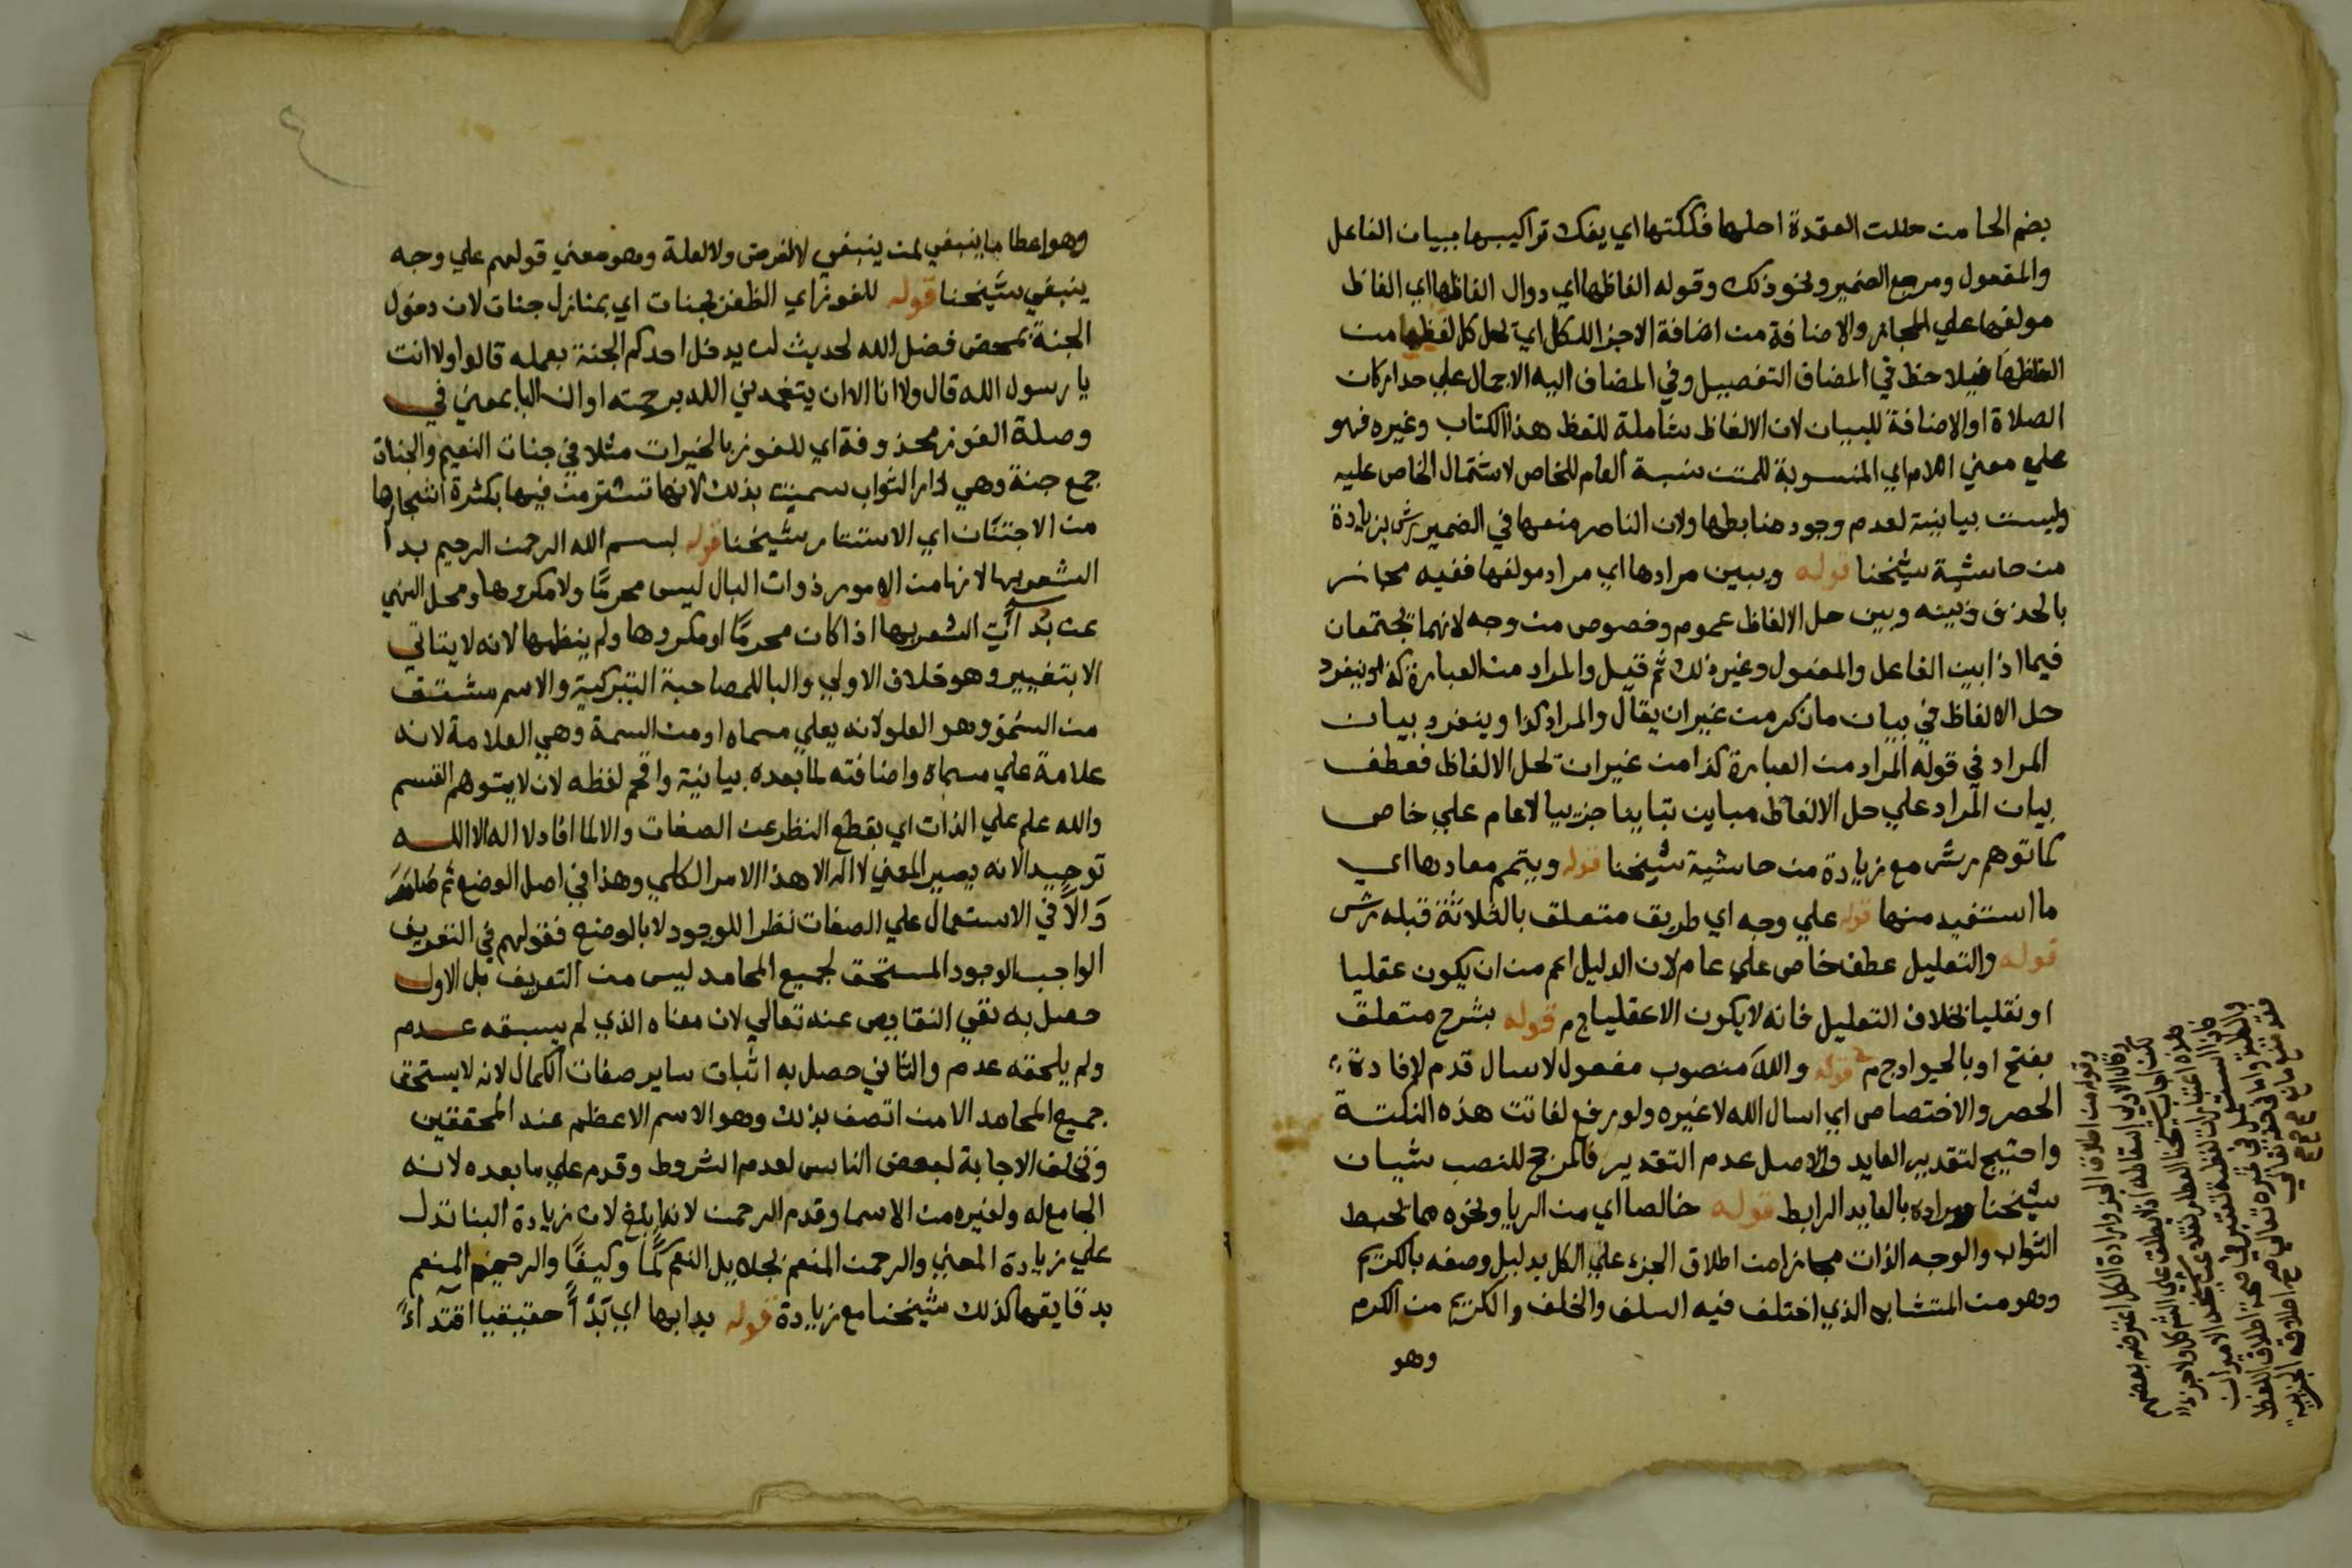 بضم الحا من حللت العقدة احلها فككتها اي يفك تراكيبها ببيان الفاعل
والمفعول ومرجع الضمير ونحو ذلك وقوله الفاظها اي دوال الفاظها اي الفاظ
مولفها علي المجاز والاضافة من اضافة الاجزا للكل اي يحل كل لفظ من
الفاظها فيلاحظ في المضاف التفصيل وفي المضاف اليه الاجمال علي حد اركان
الصلاة او الاضافة للبيان لان الالفاظ شاملة للفظ هذا الكتاب وغيره فهو
علي معني اللام اي المنسوبة للمتن نسبة العام للخاص لاشتمال الخاص عليه
وليست بيانية لعدم وجود ضابطها ولان الناصر منعها في الضمير ش بزيادة
من حاشية شيخنا قوله ويبين مرادها اي مراد مولفها ففيه مجاز
بالحذف وبينه وبين حل الالفاظ عموم وخصوص من وجه لانهما يجتمعان
فيما اذا بين الفاعل والمفعول وغير ذلك ثم قيل والمراد من العبارة كذا وينفرد
حل الالفاظ في بيان ما ذكر من غير ان يقال والمراد كذا وينفرد بيان
المراد في قوله المراد من العبارة كذا من غير ان تحل الالفاظ فعطف
بيان المراد علي حل الالفاظ مباين تباينا جزييا لا عام علي خاص
كما توهم ش مع زيادة من حاشية شيخنا قوله ويتمم مفادها اي
ما استفيد منها قوله علي وجه اي طريق متعلق بالثلاثة قبله ش
قوله والتعليل عطف خاص علي عام لان الدليل اعم من ان يكون عقليا
او نقليا بخلاف التعليل فانه لا يكون الا عقليا قوله بشرح متعلق
بفتح او بالحيوادج م قوله والله منصوب مفعول لاسال قدم لافادة
الحصر والاختصاص اي اسال الله لا غيره ولو رفع لفاتت هذه النكتة
واحتيج لتقدير العايد والاصل عدم التقدير فالمرجح للنصب شيان
شيخنا ومراده بالعايد الرابط قوله خالصا اي من الريا ونحوه مما يحبط
الثواب والوجه الذات مجازا من اطلاق الجزء علي الكل بدليل وصفه بالكريم
وهو من المتشابه الذي اختلف فيه السلف والخلف والكريم من الكرم
وهو
وقوله من اطلاق الجزء وارادة الكل اعترضه بعضهم
وهو اعطا ما ينبغي لمن ينبغي لا لغرض ولا لعلة وهو معني قولهم علي وجه
ينبغي شيخنا قوله للفوز اي الظفر بجنات اي بمنازل جنات لان دخول
الجنة بمحض فضل الله لحديث لن يدخل احدكم الجنة بعمله قالوا ولا انت
يا رسول الله قال ولا انا الا ان يتغمدني الله برحمته او ان البا بمعني في
وصلة الفوز محذوفة اي للفوز بالخيرات مثلا في جنات النعيم والجنات
جمع جنة وهي دار الثواب سميت بذلك لانها تستتر من فيها بكثرة اشجارها
من الاجتنان اي الاستتار شيخنا قوله بسم الله الرحمن الرحيم بدا
الشعر بها لانها من الامور ذوات البال ليس محرما ولا مكروها ومحل النهي
عن بدآت الشعر بها اذا كان محرما او مكروها ولم ينظمها لانه لا يتاتي
الا بتغيير وهو خلاف الاولي والبا للمصاحبة التبركية والاسم مشتق
من السمو وهو العلو لانه يعلي مسماه او من السمة وهي العلامة لانه
علامة علي مسماه واضافته لما بعده بيانية واقحم لفظه لان لا يتوهم القسم
والله علم علي الذات اي بقطع النظر عن الصفات والا لما افاد لا اله الا الله
توحيدا لانه يصير المعني لا اله الا هذا الامر الكلي وهذا في اصل الوضع ثم
والا في الاستعمال علي الصفات نظرا للوجود لا بالوضع فقولهم في التعريف
الواجب الوجود المستحق لجميع المحامد ليس من التعريف بل الاول
حصل به نفي النقايص عنه تعالي لان معناه الذي لم يسبقه عدم
ولم يلحقه عدم والثاني حصل به اثبات ساير صفات الكمال لانه لا يستحق
جميع المحامد الا من اتصف بذلك وهو الاسم الاعظم عند المحققين
وتخلف الاجابة لبعض الناس لعدم الشروط وقدم علي ما بعده لانه
الجامع له ولغيره من الاسما وقدم الرحمن لانه ابلغ لان زيادة البنا تدل
علي زيادة المعني والرحمن المنعم بجلايل النعم كمًا وكيفًا والرحيم المنعم
بدقايقها كذلك شيخنا مع زيادة قوله بدا بها اي بدًا حقيقيا اقتداءً